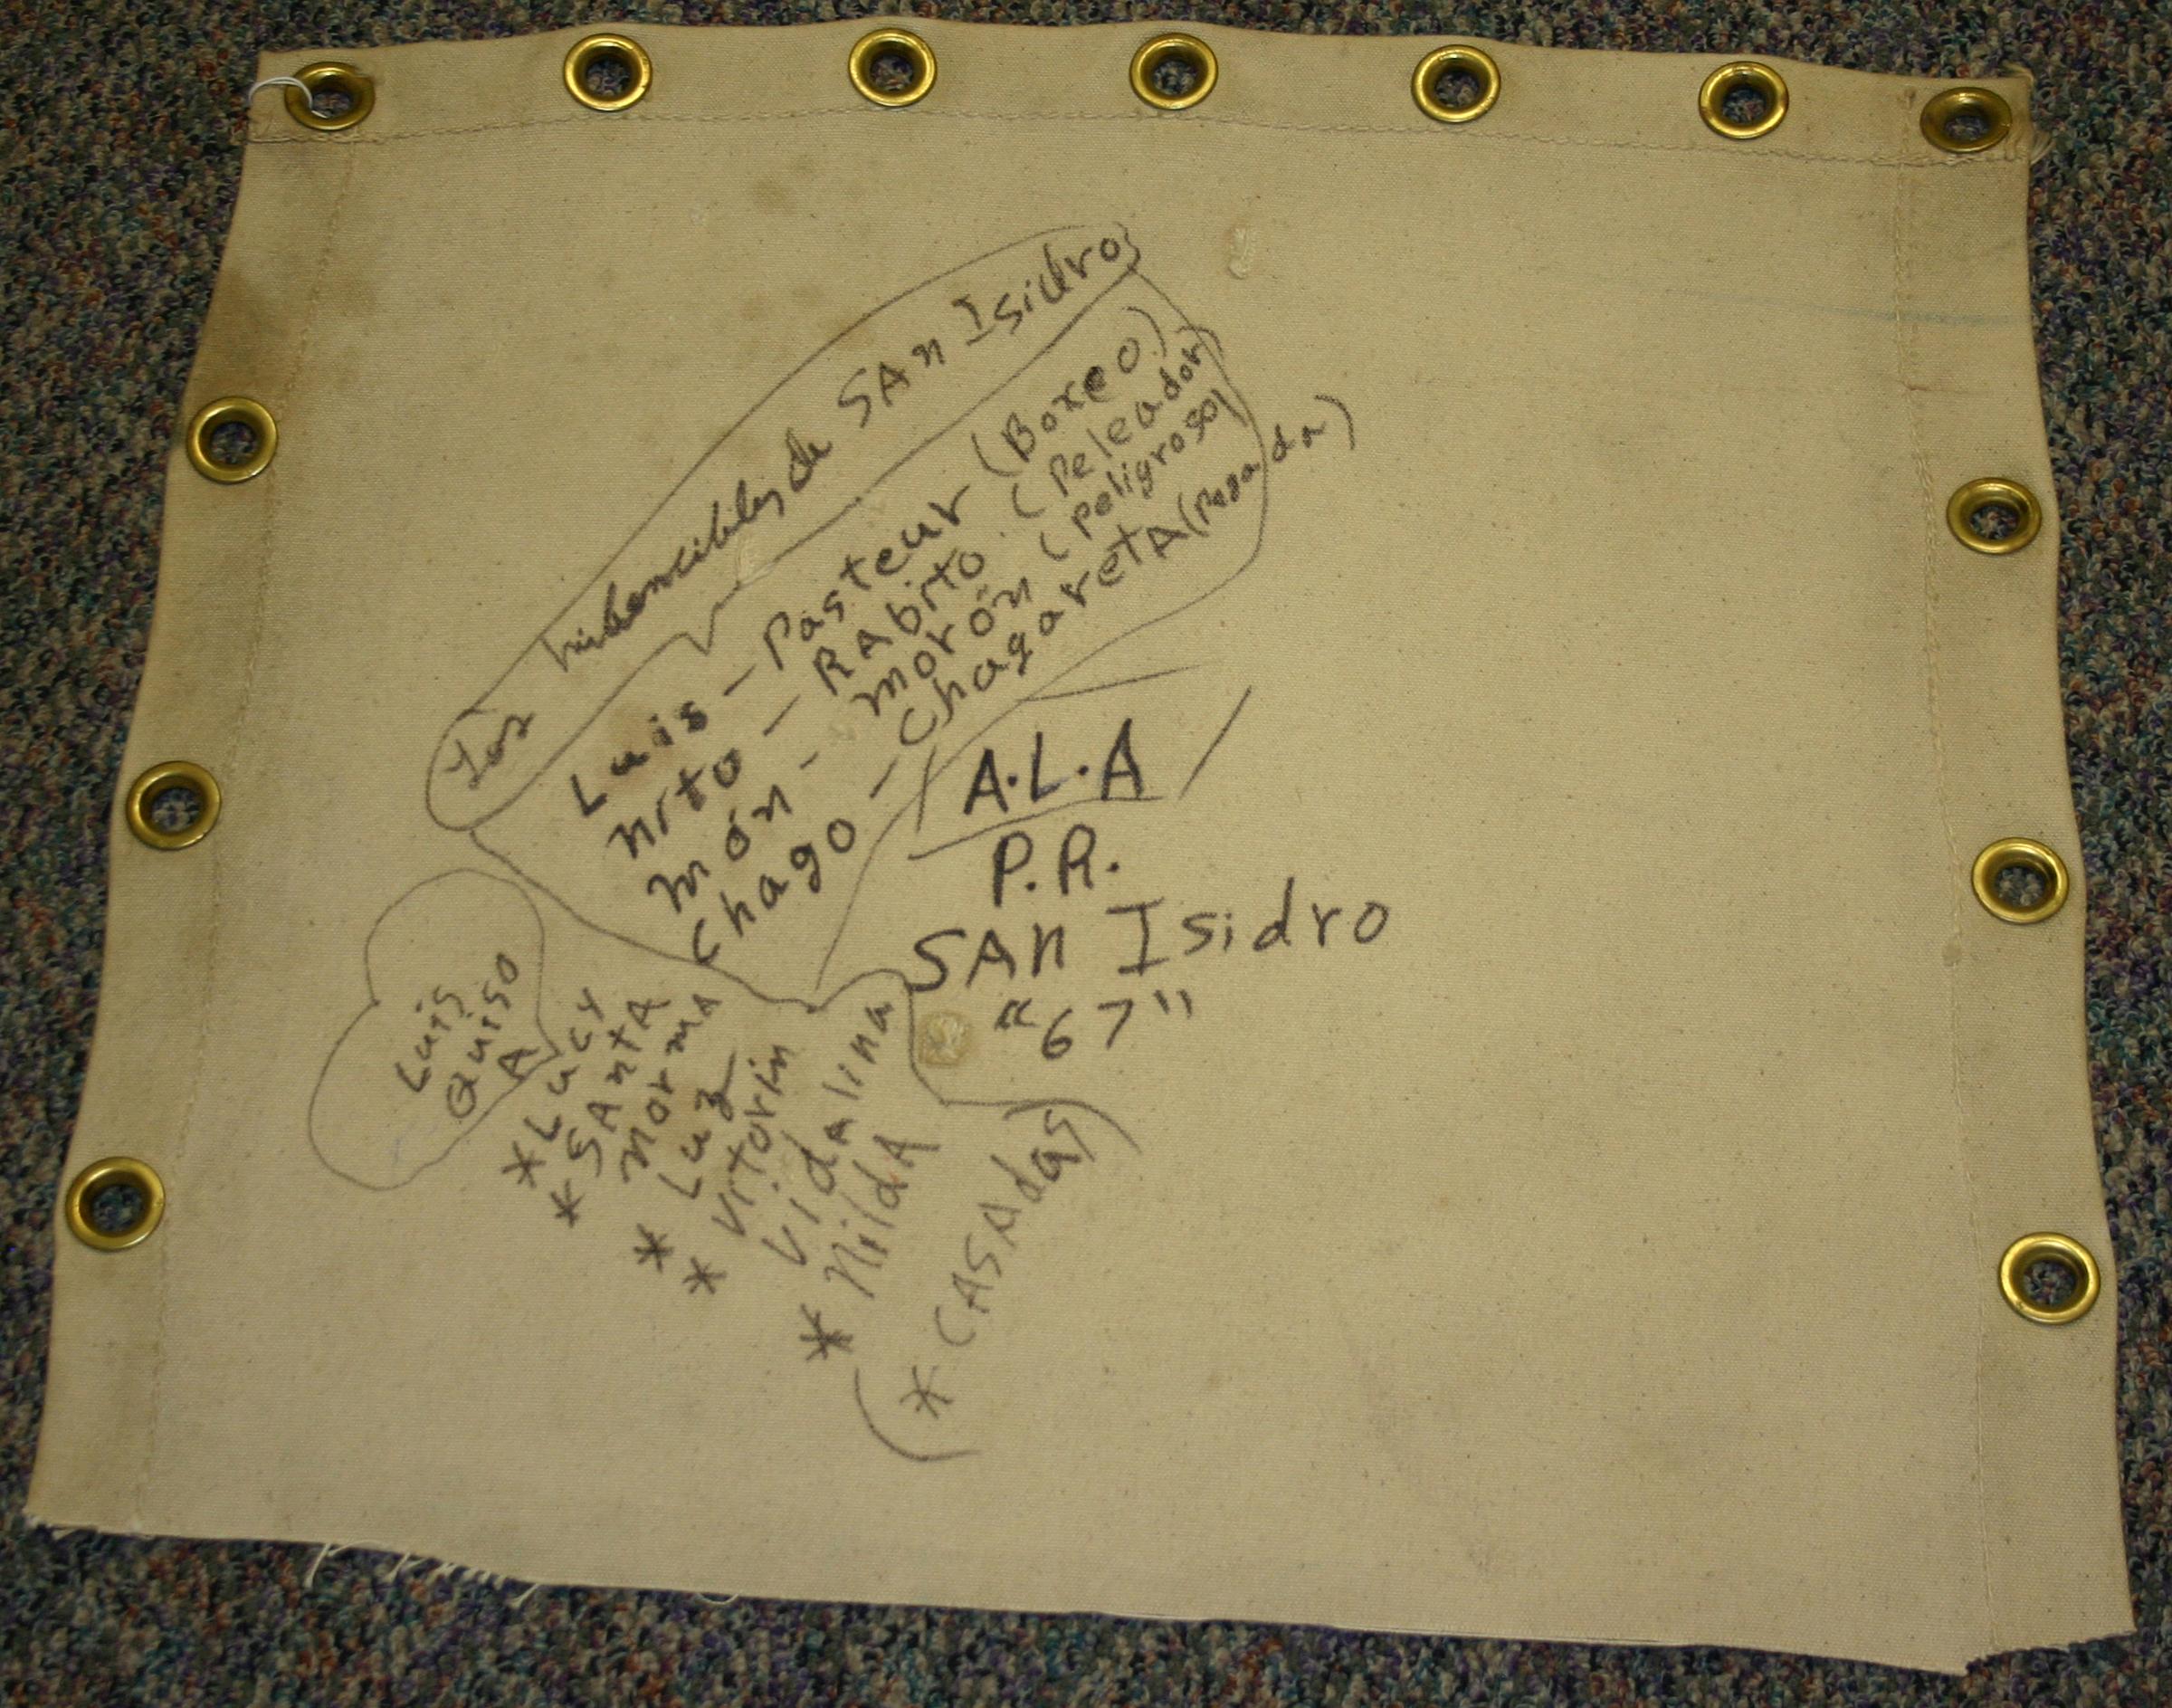 Los Inbencibles de SAn Isidro
Luis - Pasteur (Boxeo)
Nito - RAbito (Peleador)
Món - Morón (Peligroso)
Chago - ChagaretA (Pegada)
A.L.A
P.R.
SAn Isidro
"67"
Luis
Quiso
A
* Lucy
* SAntA
NormA
* Luz
* Vitorin
Vidalina
* NildA
(* CASAdas)